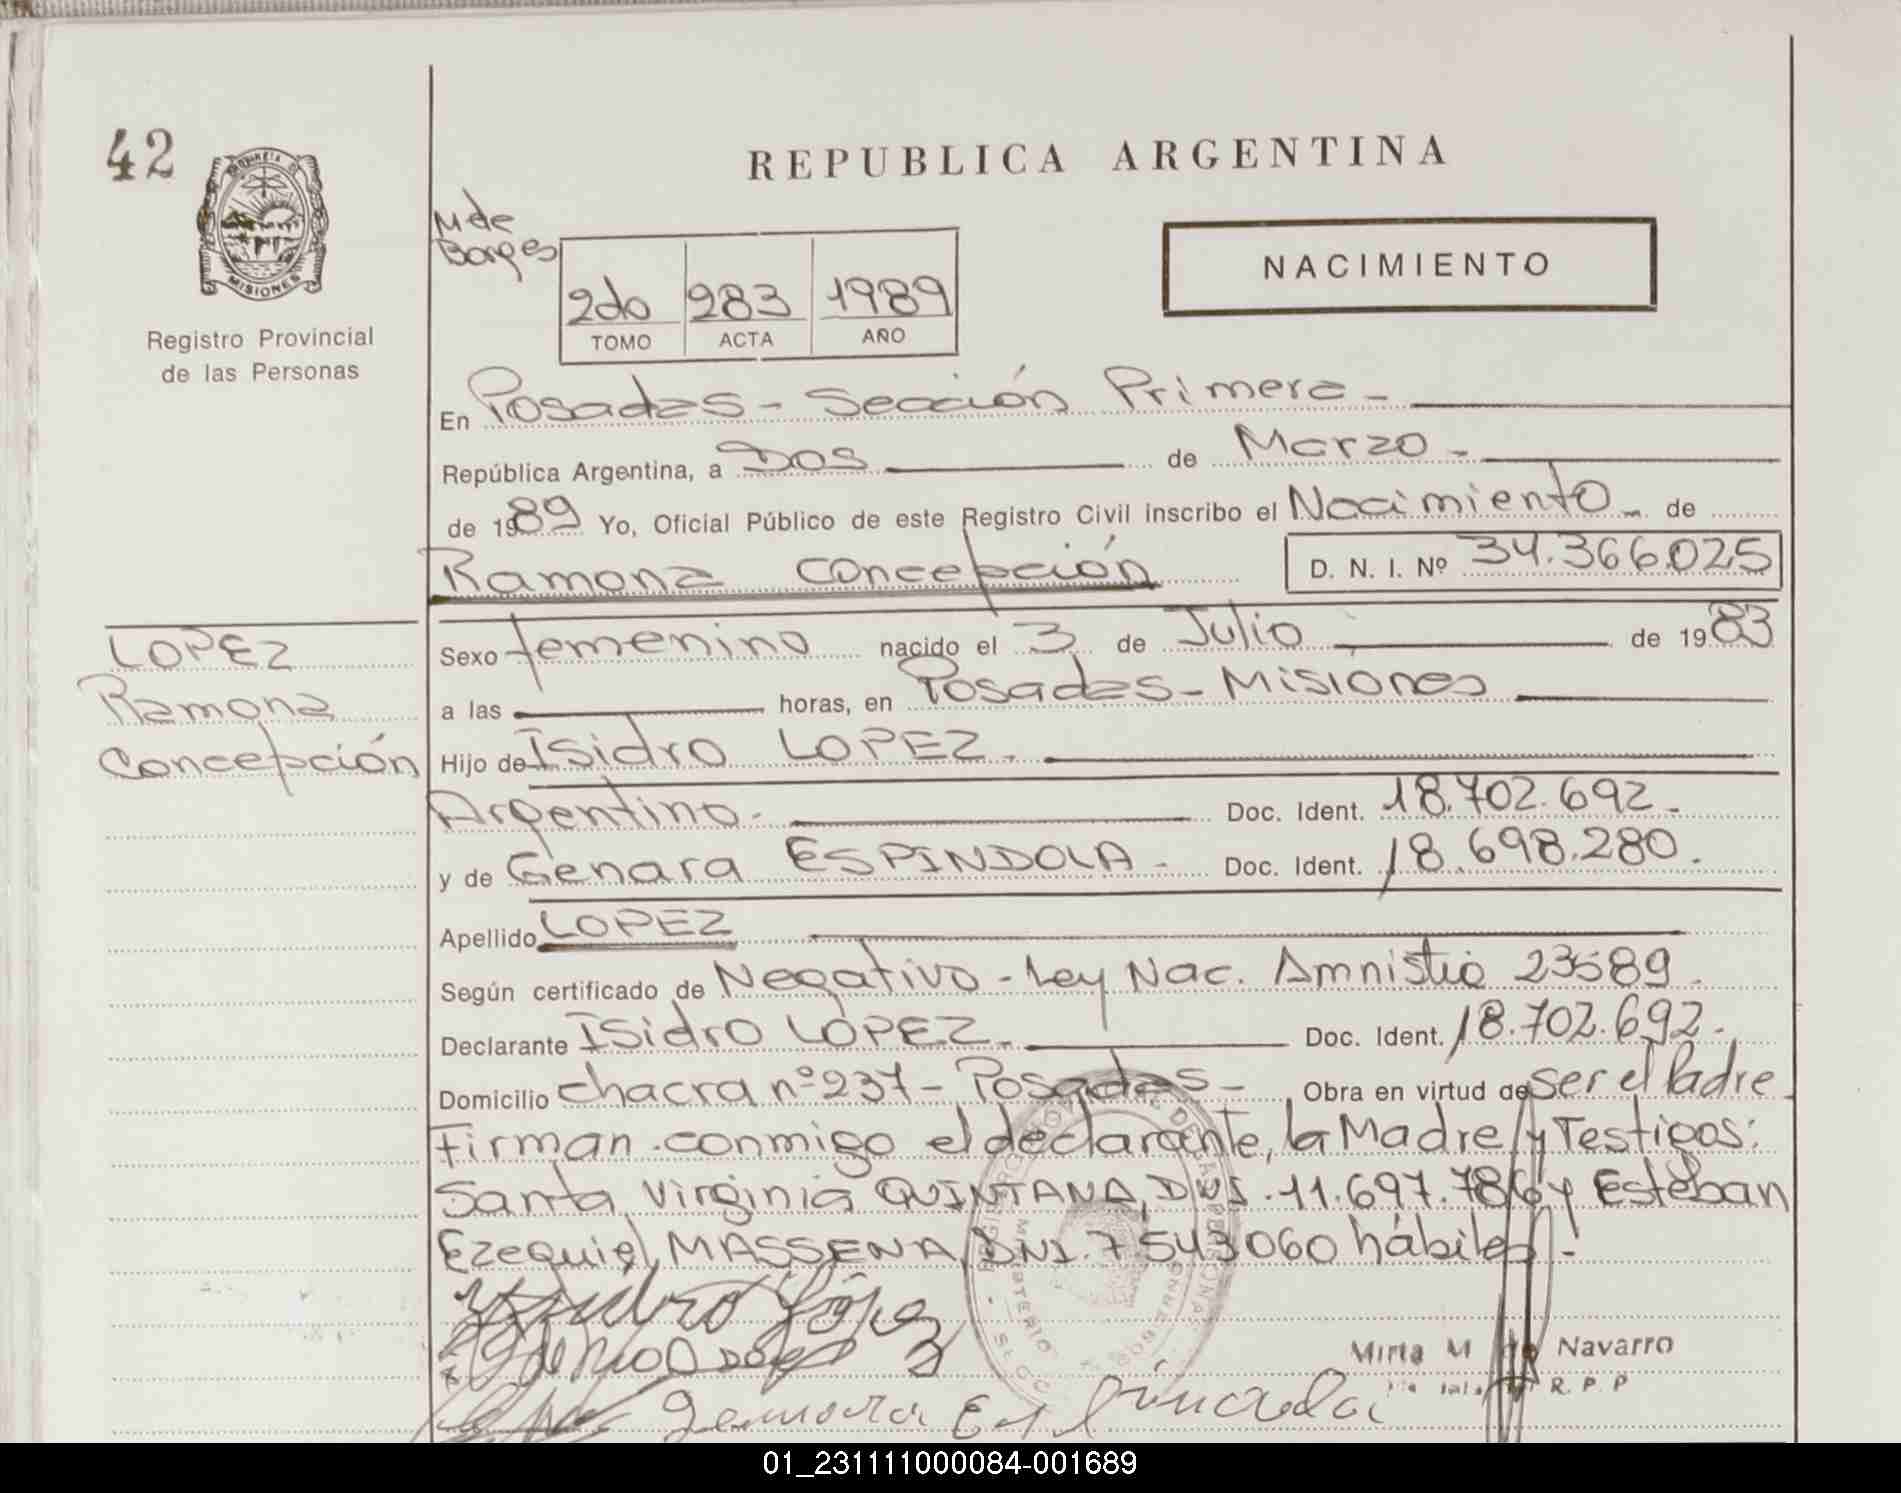 42
REPUBLICA ARGENTINA
M de
Borges
NACIMIENTO
MISIONES
2do 283 1989
TOMO ACTA AÑO
Registro Provincial
de las Personas
En Posadas - Sección Primera -
República Argentina, a Dos de Marzo -
de 1989 Yo, Oficial Público de este Registro Civil inscribo el Nacimiento - de
Ramona Concepción D. N. I. Nº 34.366.025
LOPEZ
Ramona
Concepción
Sexo femenino nacido el 3 de Julio de 1983
a las horas, en Posadas - Misiones
Hijo de Isidro LOPEZ.
Argentino. Doc. Ident. 18.702.692.-
y de Genara ESPINDOLA - Doc. Ident. 18.698.280.
Apellido LOPEZ
Según certificado de Negativo - Ley Nac. Amnistia 23589.
Declarante ISidro LOPEZ. Doc. Ident. 18.702.692.
Domicilio chacra nº 237 - Posadas - Obra en virtud de ser el Padre.
Firman conmigo el declarante, la Madre y Testigos:
Santa Virginia QUINTANA, DNI. 11.697.786 y Esteban
Ezequiel MASSENA, DNI. 7.543060 hábiles.-
Isidro López
Mirta M de Navarro
R. P. P
Genara Espindola
01_231111000084-001689